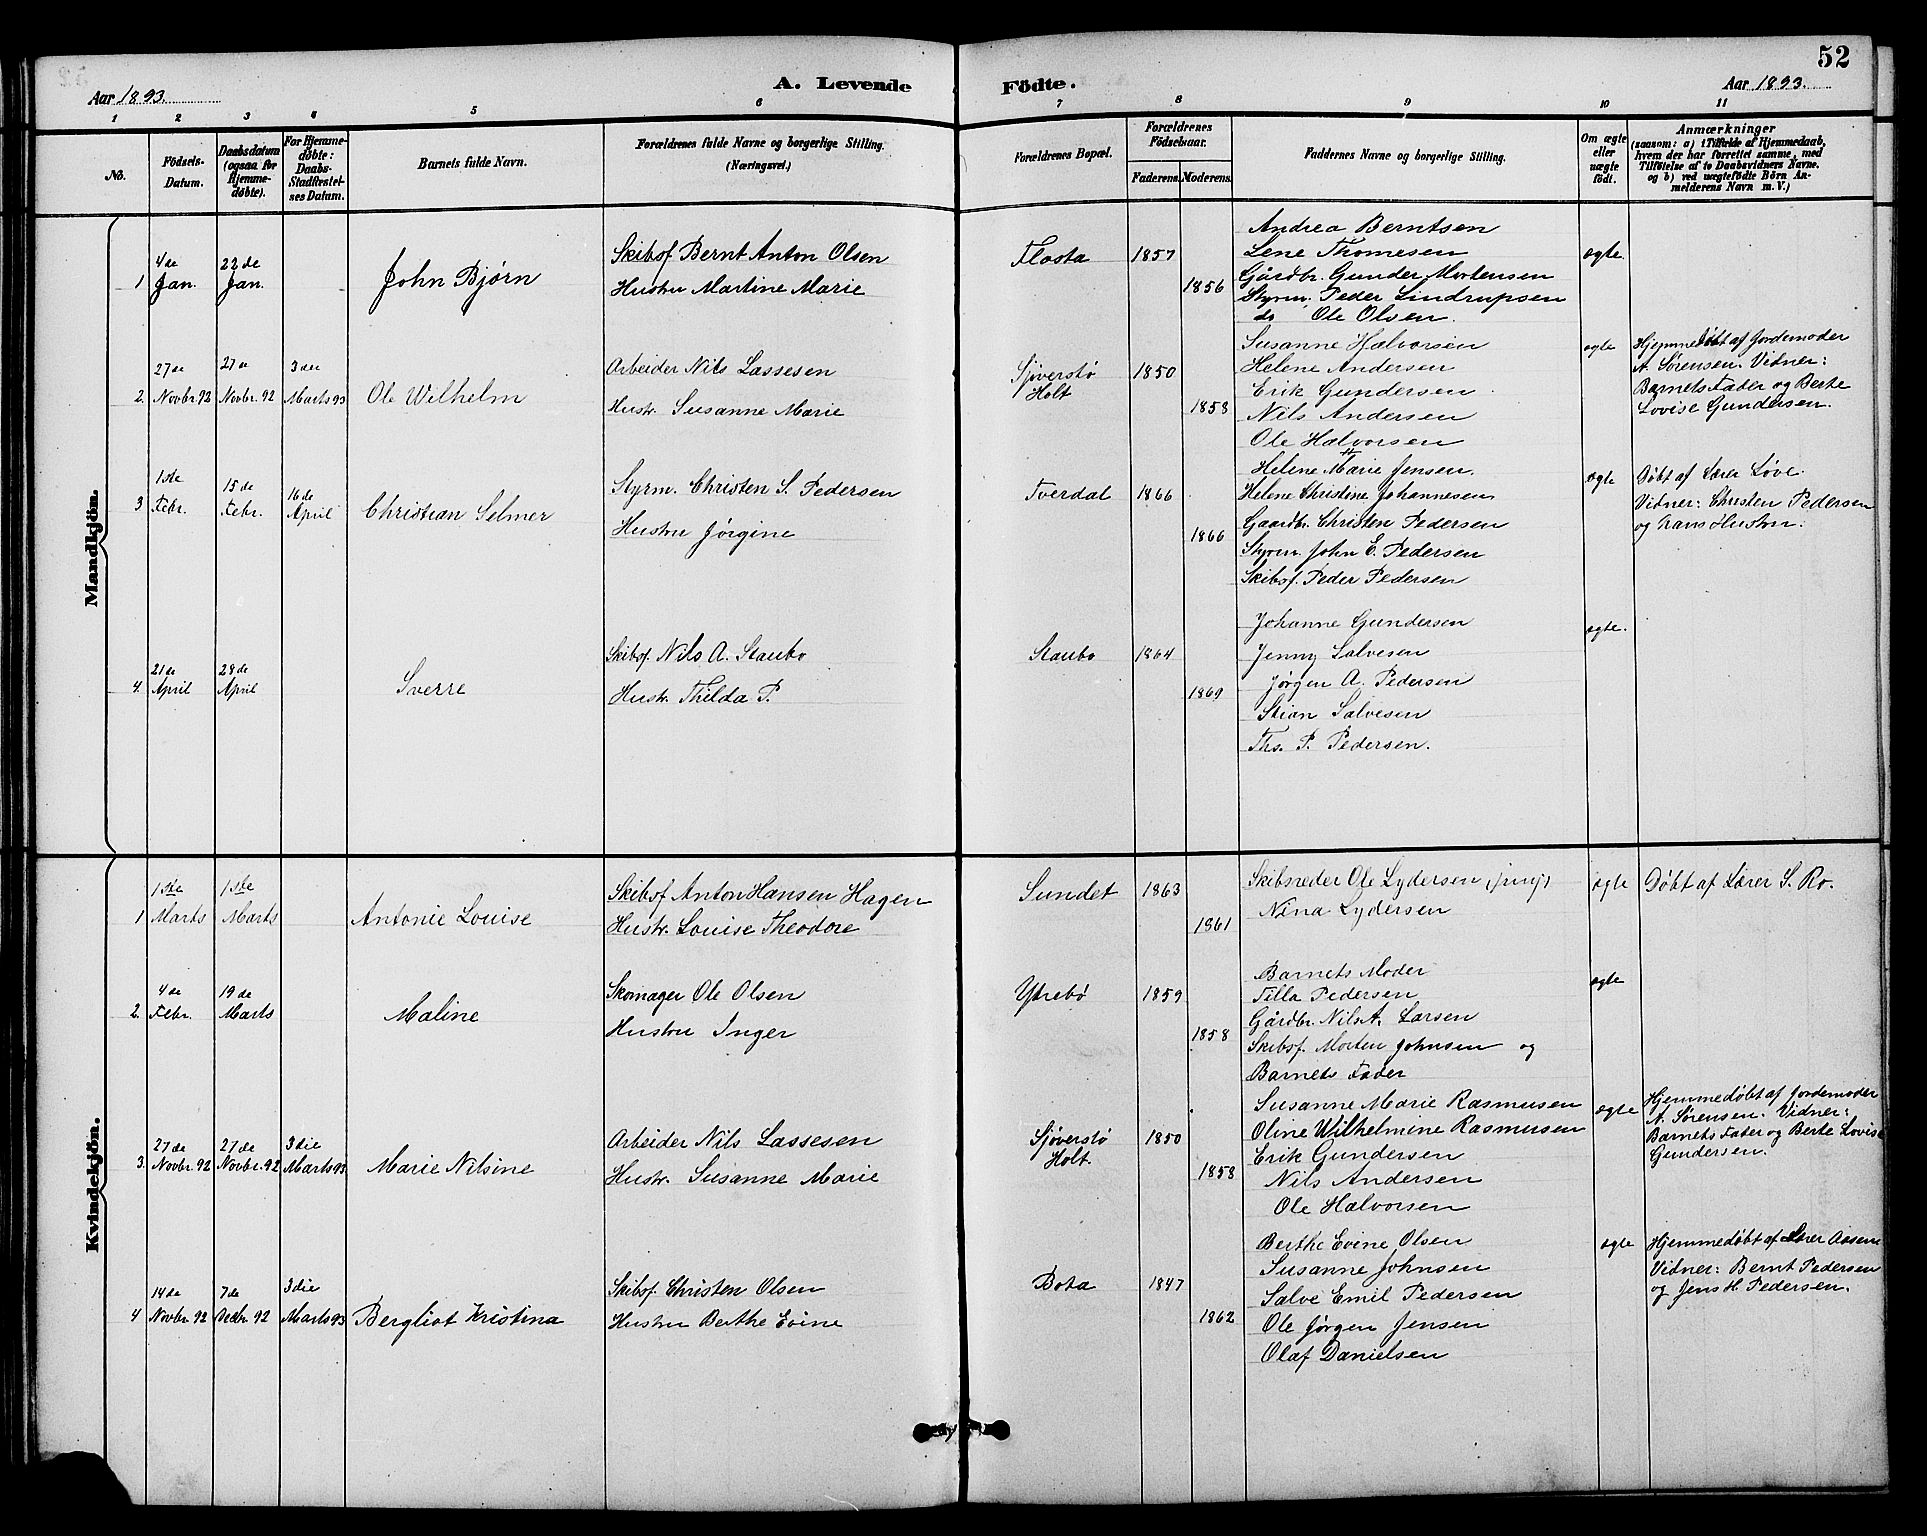 52
Aar 1893.
A. Levende
Födte.
Aar 1893.
1 2 3 4 5 6 7 8 9 10 11
No.
Födsels-
Datum.
Daabsdatum
(ogsaa for
Hjemme-
döbte).
For Hjemme-
döbte:
Daabs-
Stadfæstel-
ses Datum.
Barnets fulde Navn.
Forældrenes fulde Navne og borgerlige Stilling.
(Næringsvei.)
Forældrenes Bopæl.
Forældrenes
Födselsaar.
Faderens. Moderens.
Faddernes Navne og borgerlige Stilling.
Om ægte
eller
uægte
födt.
Anmærkninger
(saasom: a) i Tilfælde af Hjemmedaab,
hvem der har forrettet samme, med
Tilföielse af to Daabsvidners Navne.
og b) ved uægtefödte Börn An-
melderens Navn m. V.)
Mandkjön.
1
4de
Jan.
22de
Jan.
John Bjørn
Skibsf. Bernt Anton Olsen
Hustru Martine Marie
Flosta
1857
1856
Andrea Berntsen
Lene Thomesen
Gårdbr. Gunder Mortensen
Styrm. Peder Lindrupsen
do Ole Olsen.
ægte.
2.
27de
Novbr. 92
27de
Novbr. 92
3die
Marts 93
Ole Wilhelm
Arbeider Nils Lassesen
Hustr. Susanne Marie
Sjöverstø
Holt
1850
1858
Susanne Halvorsen
Helene Andersen
Erik Gundersen
Nils Andersen
Ole Halvorsen
ægte
Hjemmedöbt af Jordemoder
A. Sørensen. Vidner:
Barnets Fader og Berte
Lovise Gundersen.
3
1ste
Febr.
15de
Febr.
16de
April
Christian Selmer
Styrm. Christen S. Pedersen
Hustru Jørgine
Tverdal
1866
1866
Helene Marie Jensen.
Helene Christine Johannesen
Gaardbr. Christen Pedersen
Styrm. John E. Pedersen
Skibsf. Peder Pedersen
ægte
Døbt af Lærer Løve.
Vidner: Christen Pedersen
og hans Hustru.
4.
21de
April
28de
April
Sverre
Skibsf. Nils A. Staubo
Hustr. Thilda P.
Staubo
1864
1869
Johanne Gundersen
Jenny Salvesen
Jørgen A. Pedersen
Stian Salvesen
Ths. P. Pedersen.
ægte.
Kvindekjön.
1
1ste
Marts
1ste
Marts
Antonie Louise
Skibsf. Anton Hansen Hagen
Hustr. Louise Theodore
Sundet
1863
1861
Skibsreder Ole Lydersen (jun)
Nina Lydersen
ægte
Døbt af Lærer S. Ro.
2.
4de
Febr.
19de
Marts
Maline
Skomager Ole Olsen
Hustru Inger
Ytrebø
1859
1858
Barnets Moder
Tilla Pedersen
Gårdbr. Nils A. Larsen
Skibsf. Morten Johnsen og
Barnets Fader
ægte
3.
27de
Novbr. 92
27de
Novbr. 92
3die
Marts 93
Marie Nilsine
Arbeider Nils Lassesen
Hustr. Susanne Marie
Sjöverstø
Holt.
1850
1858
Susanne Marie Rasmusen
Oline Wilhelmine Rasmusen
Erik Gundersen
Nils Andersen
Ole Halvorsen
ægte
Hjemmedøbt af Jordemoder
A. Sørensen. Vidner:
Barnets Fader og Berte Lovise
Gundersen.
4
14de
Novbr. 92
7de
Decbr. 92
3die
Marts 93
Bergliot Kristina
Skibsf. Christen Olsen
Hustru Berthe Evine
Bota
1847
1862
Berthe Evine Olsen
Susanne Johnsen
Salve Emil Pedersen
Ole Jørgen Jensen
Olaf Danielsen
ægte
Hjemmedøbt af Lærer Aasene
Vidner: Bernt Pedersen
og Jens H. Pedersen.